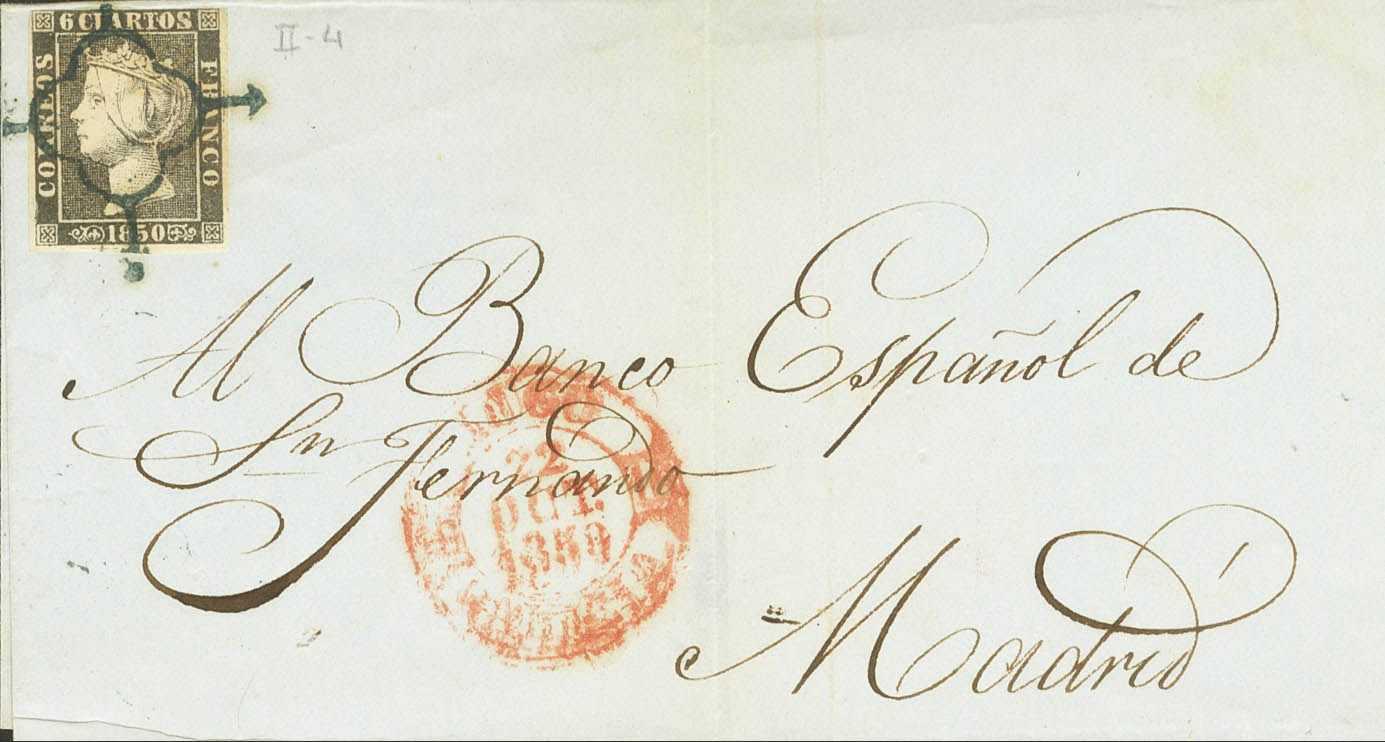 6 CUARTOS
CORREOS
FRANCO
1850
II-4
Al Banco Español de
Sn Fernando
22
OCT.
1850
Madrid